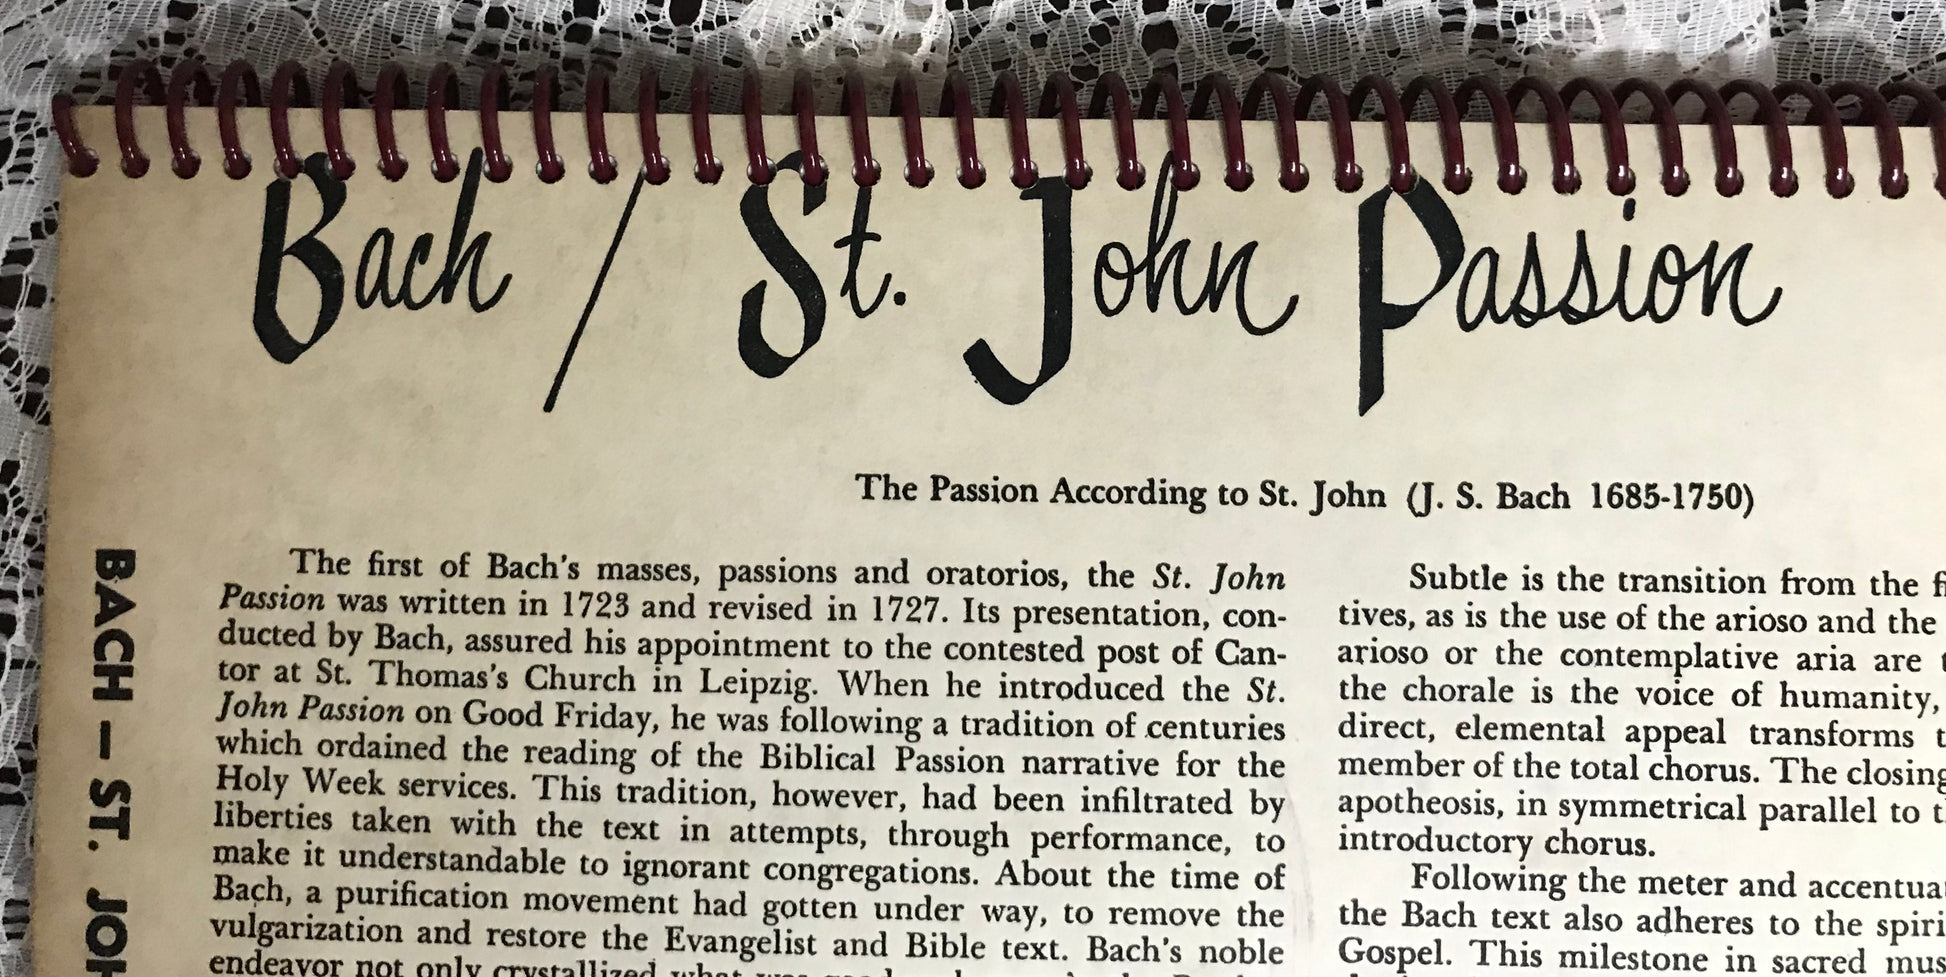 Bach / St. John Passion
The Passion According to St. John (J. S. Bach 1685-1750)
BACH — ST.
The first of Bach's masses, passions and oratorios, the St. John
Passion was written in 1723 and revised in 1727. Its presentation, con-
ducted by Bach, assured his appointment to the contested post of Can-
tor at St. Thomas's Church in Leipzig. When he introduced the St.
John Passion on Good Friday, he was following a tradition of centuries
which ordained the reading of the Biblical Passion narrative for the
Holy Week services. This tradition, however, had been infiltrated by
liberties taken with the text in attempts, through performance, to
make it understandable to ignorant congregations. About the time of
Bach, a purification movement had gotten under way, to remove the
vulgarization and restore the Evangelist and Bible text. Bach's noble
endeavor not only crystallized what was
Subtle is the transition from the
tives, as is the use of the arioso and the
arioso or the contemplative aria are
the chorale is the voice of humanity,
direct, elemental appeal transforms
member of the total chorus. The closing
apotheosis, in symmetrical parallel to
introductory chorus.
Following the meter and
the Bach text also adheres to the
Gospel. This milestone in sacred